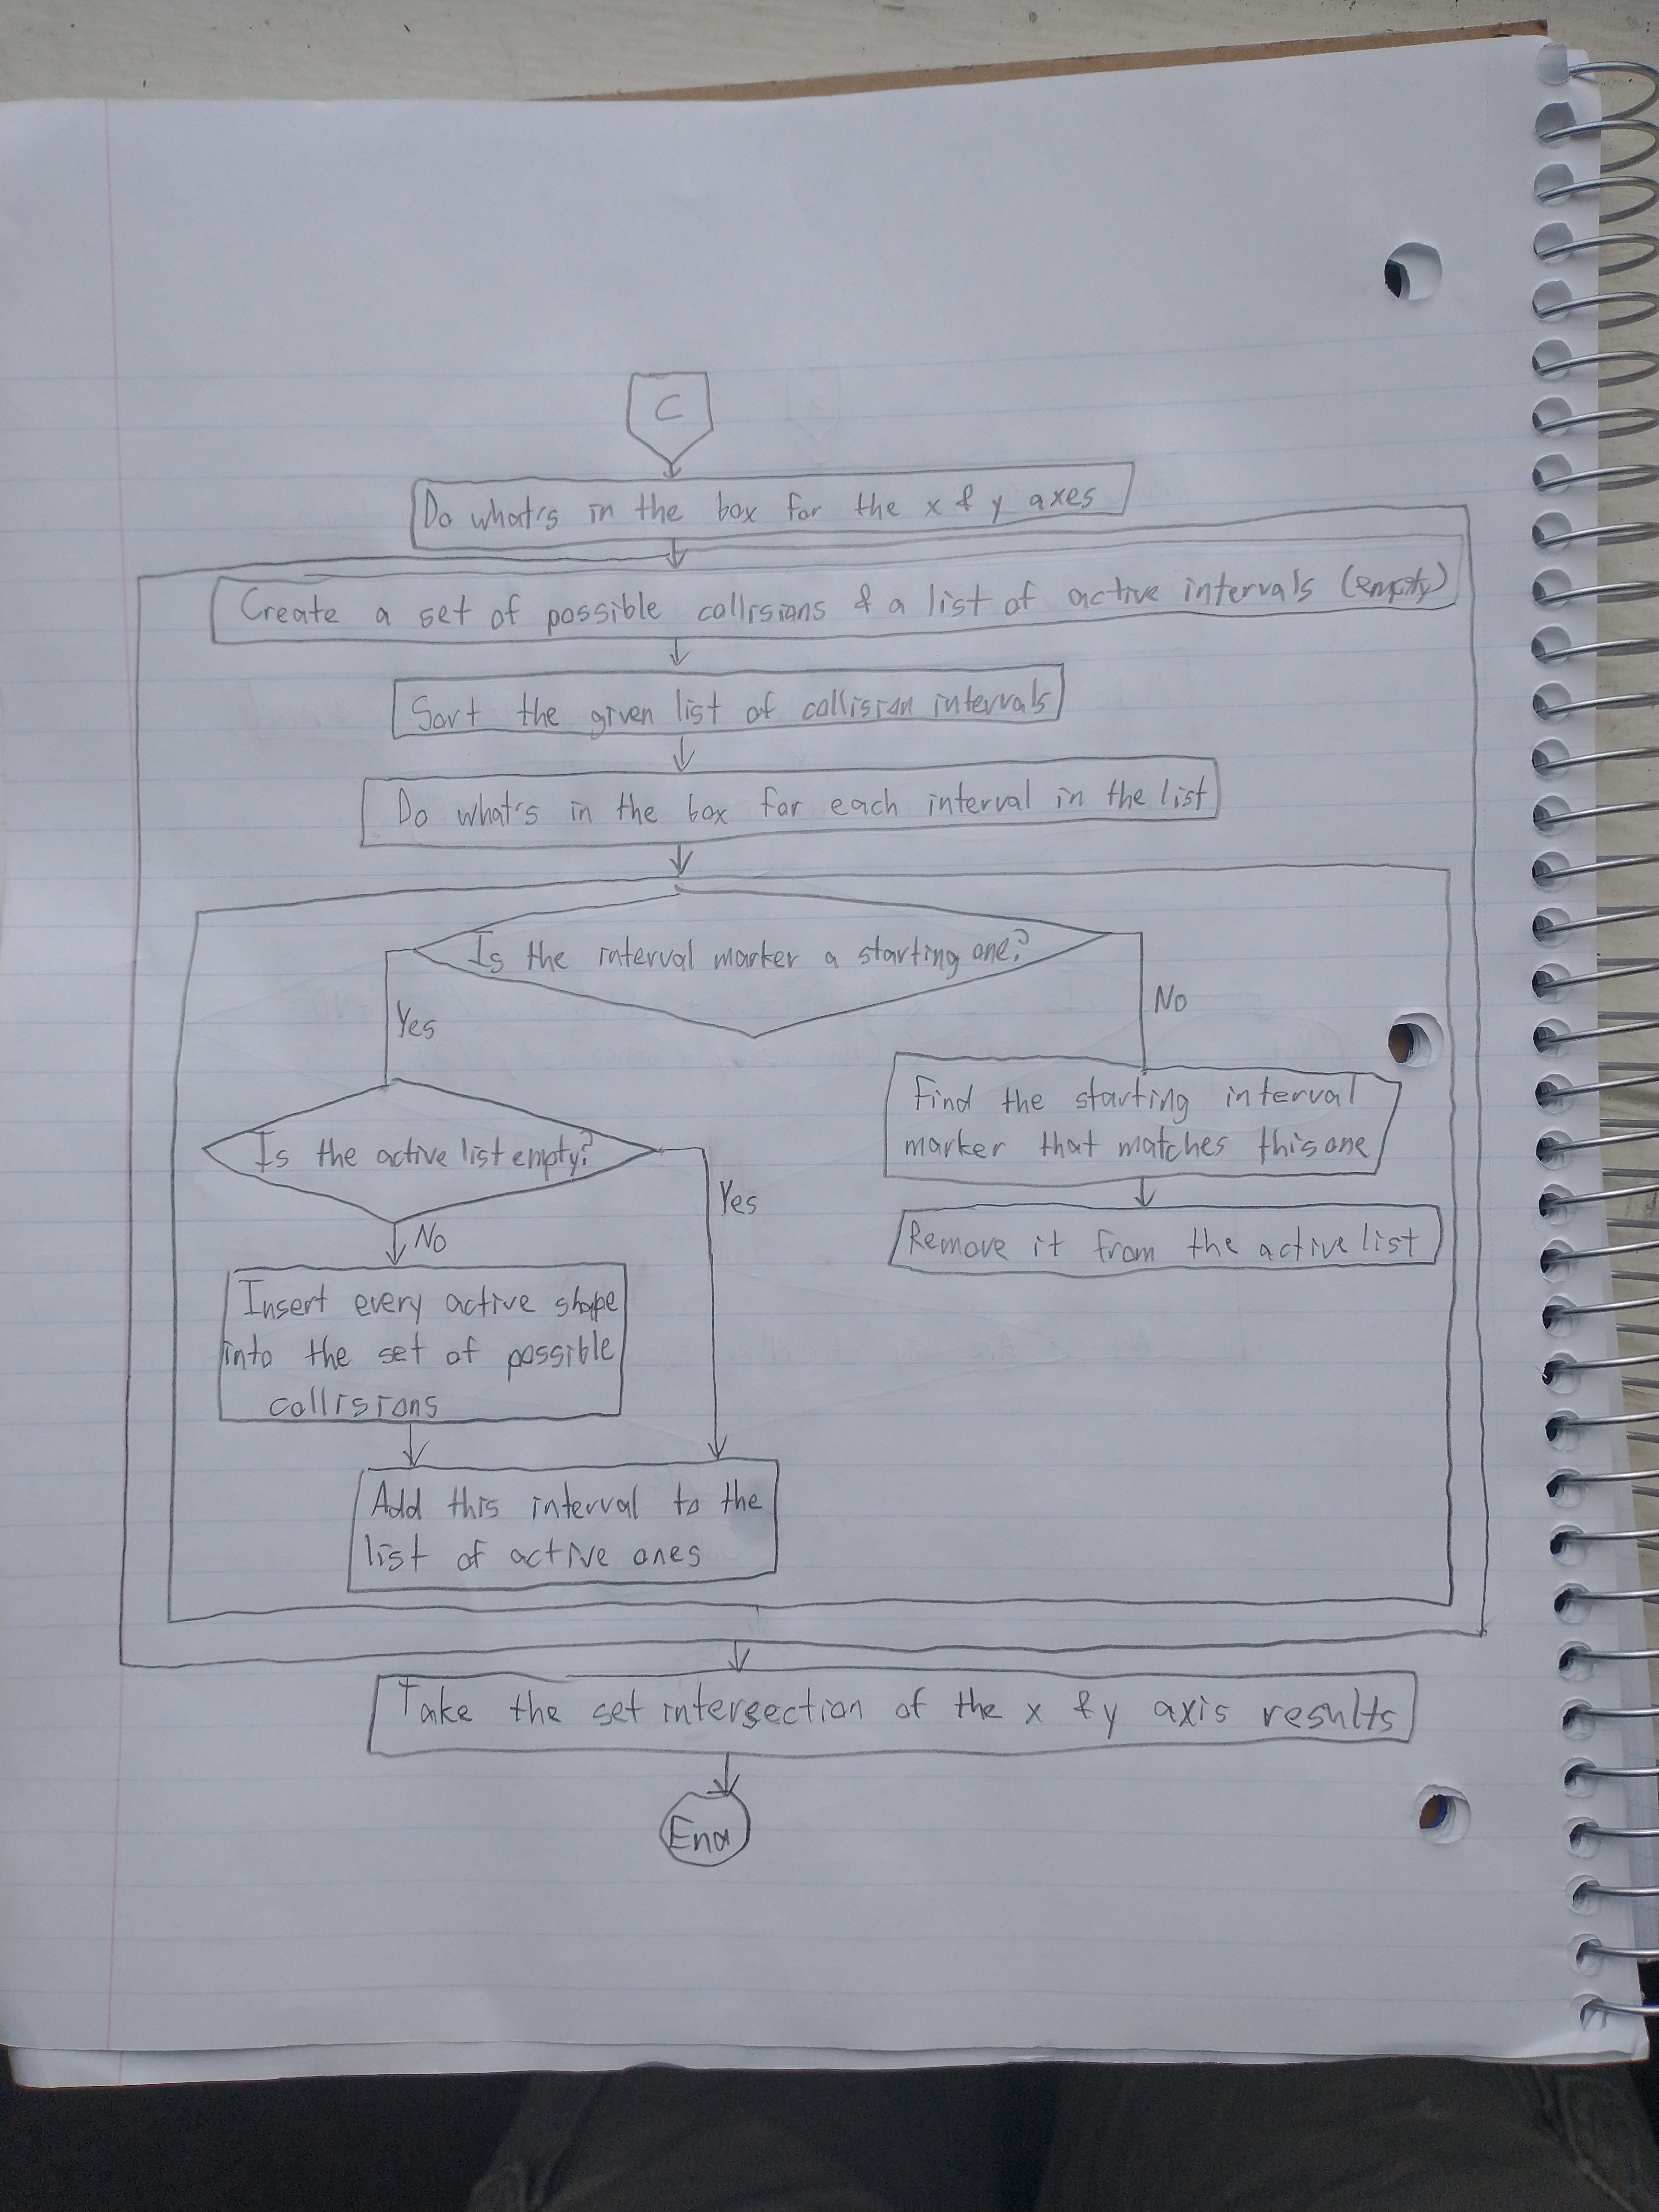 C
Do what's in the box for the x & y axes
Create a set of possible collisions & a list of active intervals (empty)
Sort the given list of collision intervals
Do what's in the box for each interval in the list
Is the interval marker a starting one?
Yes
No
Find the starting interval
marker that matches this one
Is the active list empty?
Yes
No
Remove it from the active list
Insert every active shape
into the set of possible
collisions
Add this interval to the
list of active ones
Take the set intersection of the x & y axis results
End